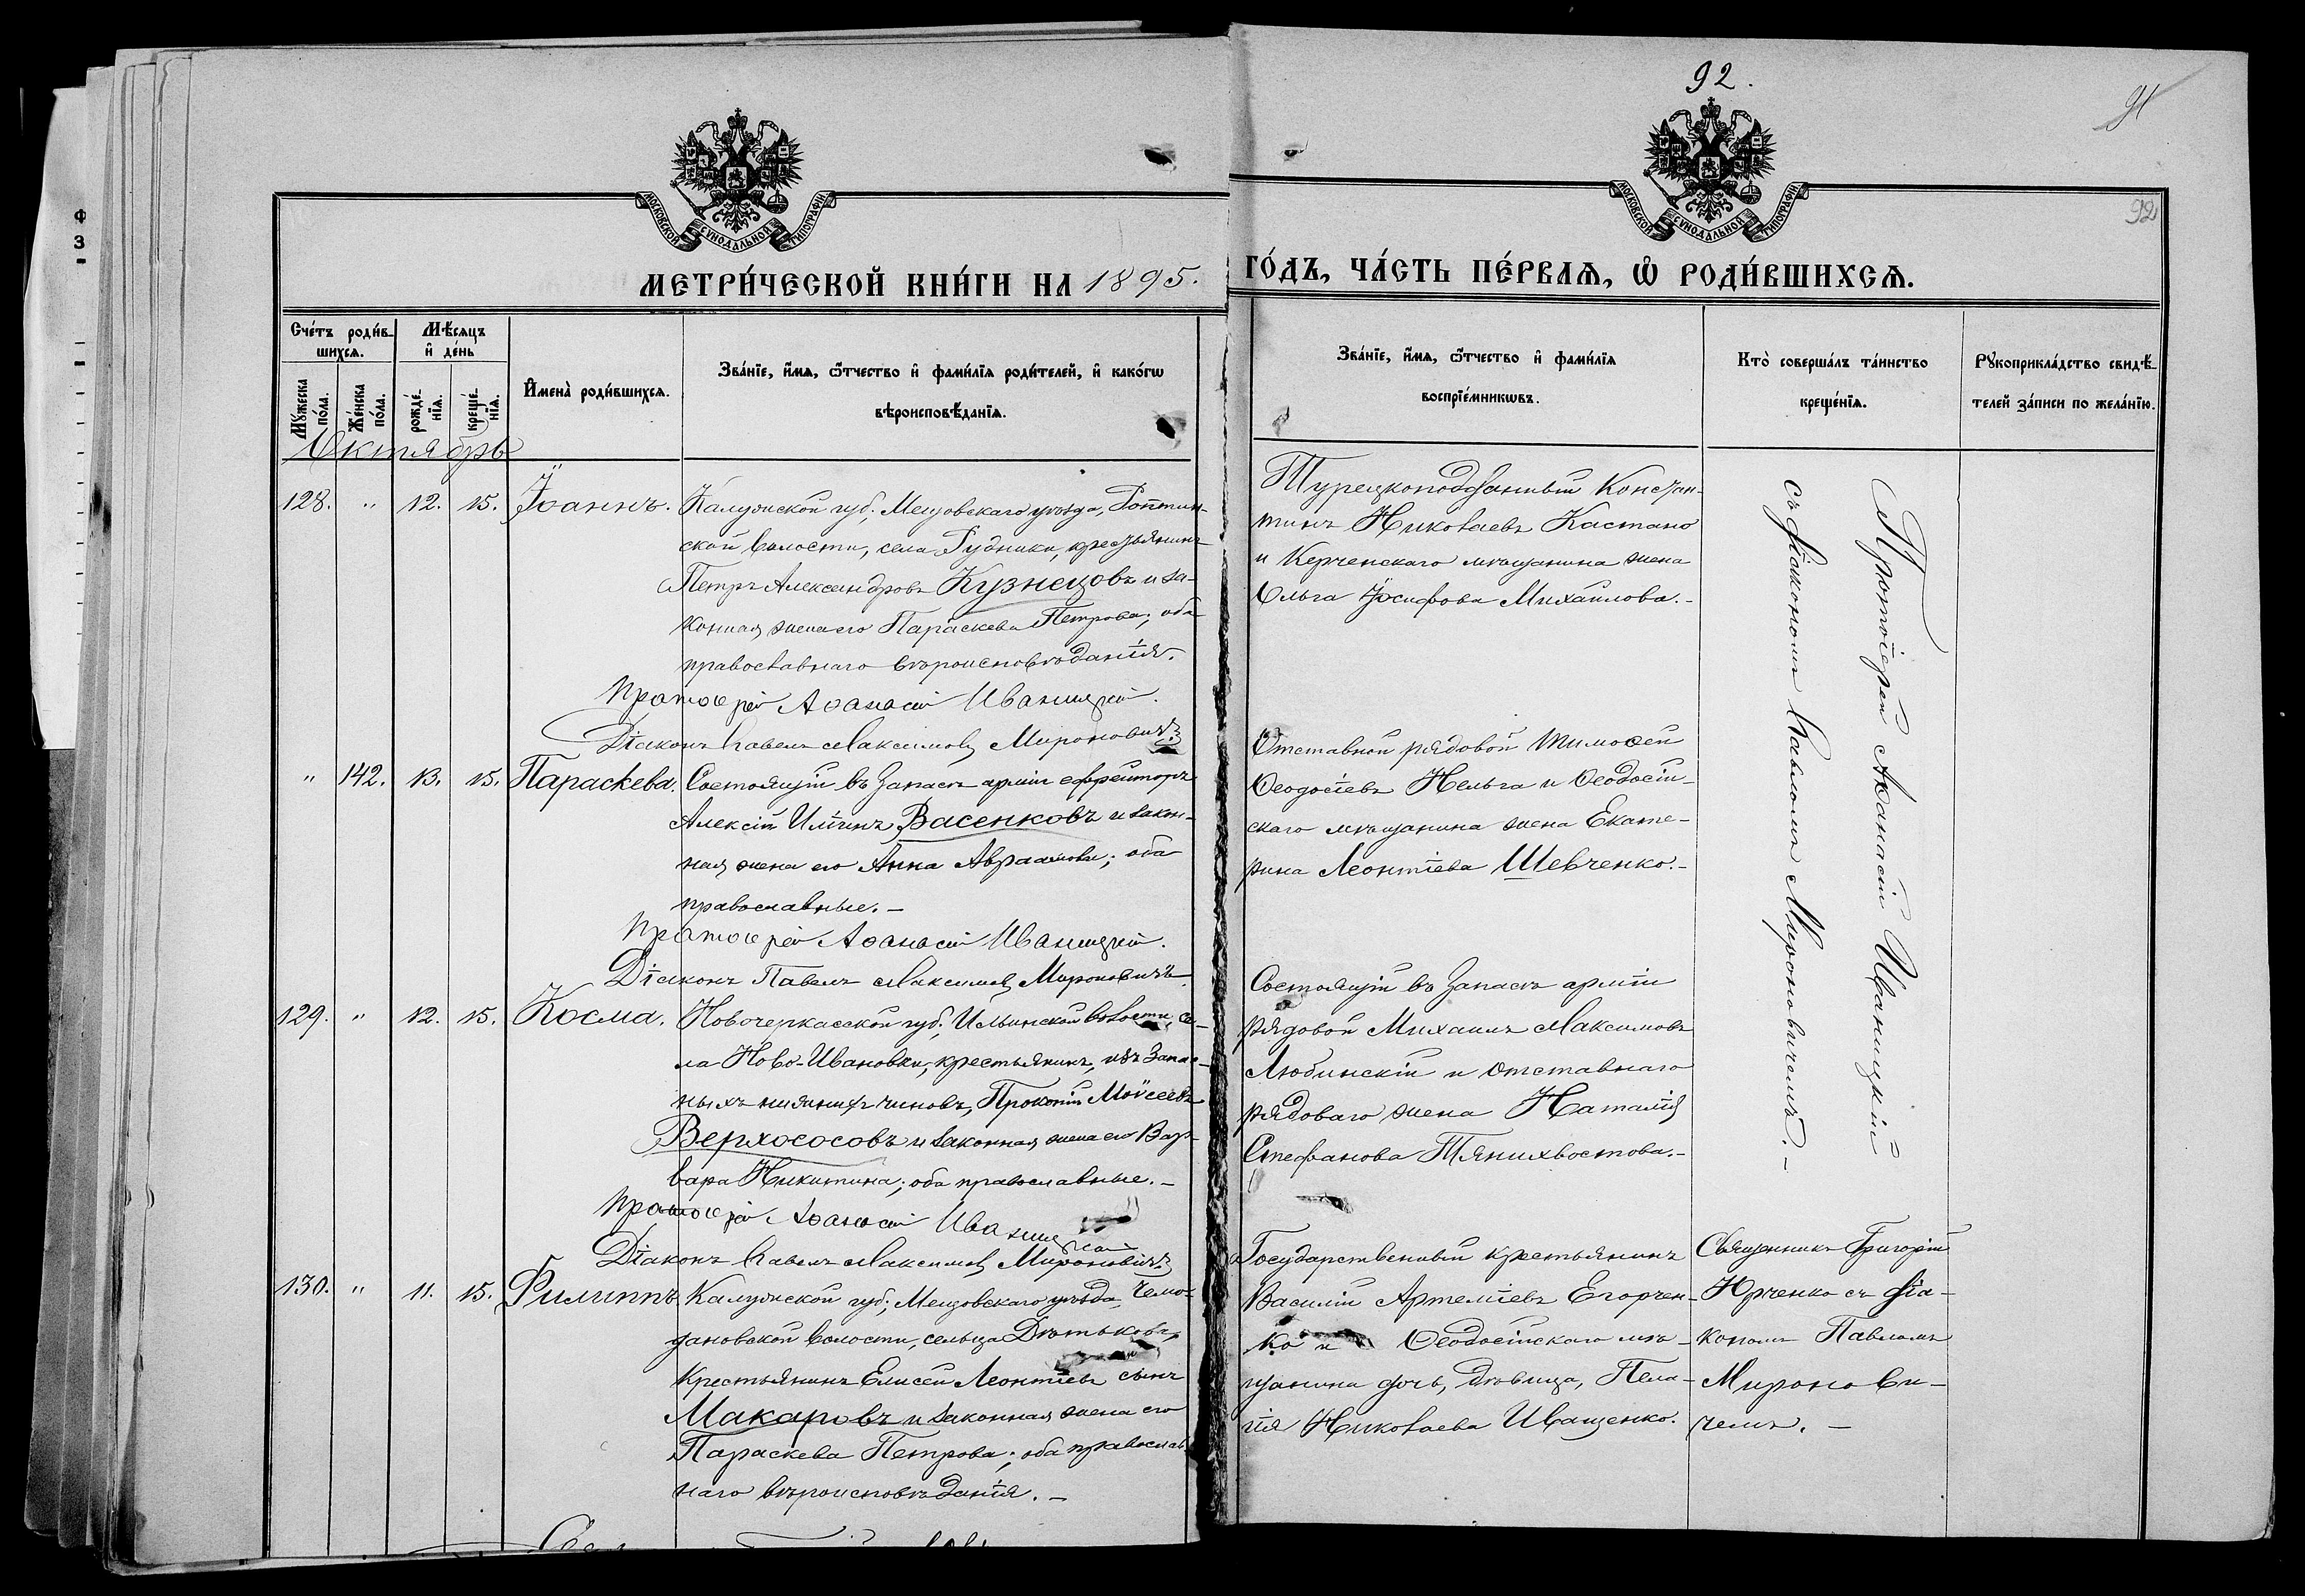 92.
91
92
МОСКОВСКОЙ СУНОДАЛЬНОЙ ТИПОГРАФІИ
МОСКОВСКОЙ СУНОДАЛЬНОЙ ТИПОГРАФІИ
МЕТРИ́ЧЕСКОЙ КНИ́ГИ НА 1895.
ГО́ДЪ, ЧА́СТЬ ПЕ́РВАѦ, Ѽ РОДИ́ВШИХСѦ.
Сче́тъ роди́в-
шихсѧ.
Мѣ́сяцъ
и де́нь
Мꙋ́жеска по́ла.
Же́нска по́ла.
рожде́-нїѧ.
креще́-нїѧ.
И҆мена̀ роди́вшихсѧ.
Зва́нїе, и҆́мѧ, ѻ҆́тчество и҆ фами́лїѧ роди́телей, и҆ како́гѡ
вѣроисповѣ́данїѧ.
Зва́нїе, и҆́мѧ, ѻ҆́тчество и҆ фами́лїѧ
воспрїе́мникѡвъ.
Кто̀ соверша́лъ та́инство
креще́нїѧ.
Рꙋкоприкла́дство свидѣ́-
телей за́писи по жела́нїю.
Октябрь
128. " 12. 15. Іоаннъ. Калужской губ; Мещовскаго уѣзда,
ской волости, села Рудники, крестьянинъ
Петръ Александровъ Кузнецовъ и за-
конная жена его Параскева Петрова; оба
православнаго вѣроисповѣданія.
Протоіерей Аѳанасій Иваницкій.
Діаконъ Павелъ Максимов Мироновичъ
Турецкоподданный Констан-
тинъ Николаевъ Кастано
и Керченскаго мѣщанина жена
Ольга Іосифова Михаилова.-
Протоіерей Аѳанасій Иваницкій
съ діакономъ Павломъ Мироновичемъ. -
" 142. 13. 15. Параскева. Состоящій въ запасѣ арміи ефрейторъ
Алексій Ильинъ Васенковъ и закон-
ная жена его Анна Авраамова; оба
православные. -
Протоіерей Аѳанасій Иваницкій.
Діаконъ Павелъ Максимов Мироновичъ
Отставной рядовой Тимоѳей
Ѳеодосіевъ Нельга и Ѳеодосій-
скаго мѣщанина жена Екате-
рина Леонтіева Шевченко.-
129. " 12. 15. Косма. Новочеркасской губ; Ильинской волости, се-
ла Ново-Ивановки, крестьянинъ, изъ запас-
ныхъ нижнихъ чиновъ, Прокопій Моѵсеевъ
Верхососовъ и законная жена его Вар-
вара Никитина; оба православные. -
Протоіерей Аѳанасій Иваницкій
Діаконъ Павелъ Максимов Мироновичъ
Состоящій въ запасѣ арміи
рядовой Михаилъ Максимовъ
Любинскій и отставнаго
рядоваго жена Наталія
Стефанова Тянихвостова.-
130. " 11. 15. Филиппъ Калужской губ; Мещовскаго уѣзда, Чемо-
дановской волости, сельца Дѣтькова,
крестьянинъ Елисей Леонтіевъ сынъ
Макаровъ и законная жена его
Параскева Петрова; оба православ
наго вѣроисповѣданія. -
Государственный крестьянинъ
Василій Артеміевъ Егорчен-
ко и Ѳеодосійскаго мѣ-
щанина дочь, дѣвица, Пела-
гія Николаева Иващенко.
Священникъ Григорій
Юрченко съ діа-
кономъ Павломъ
Миронови-
чемъ. -